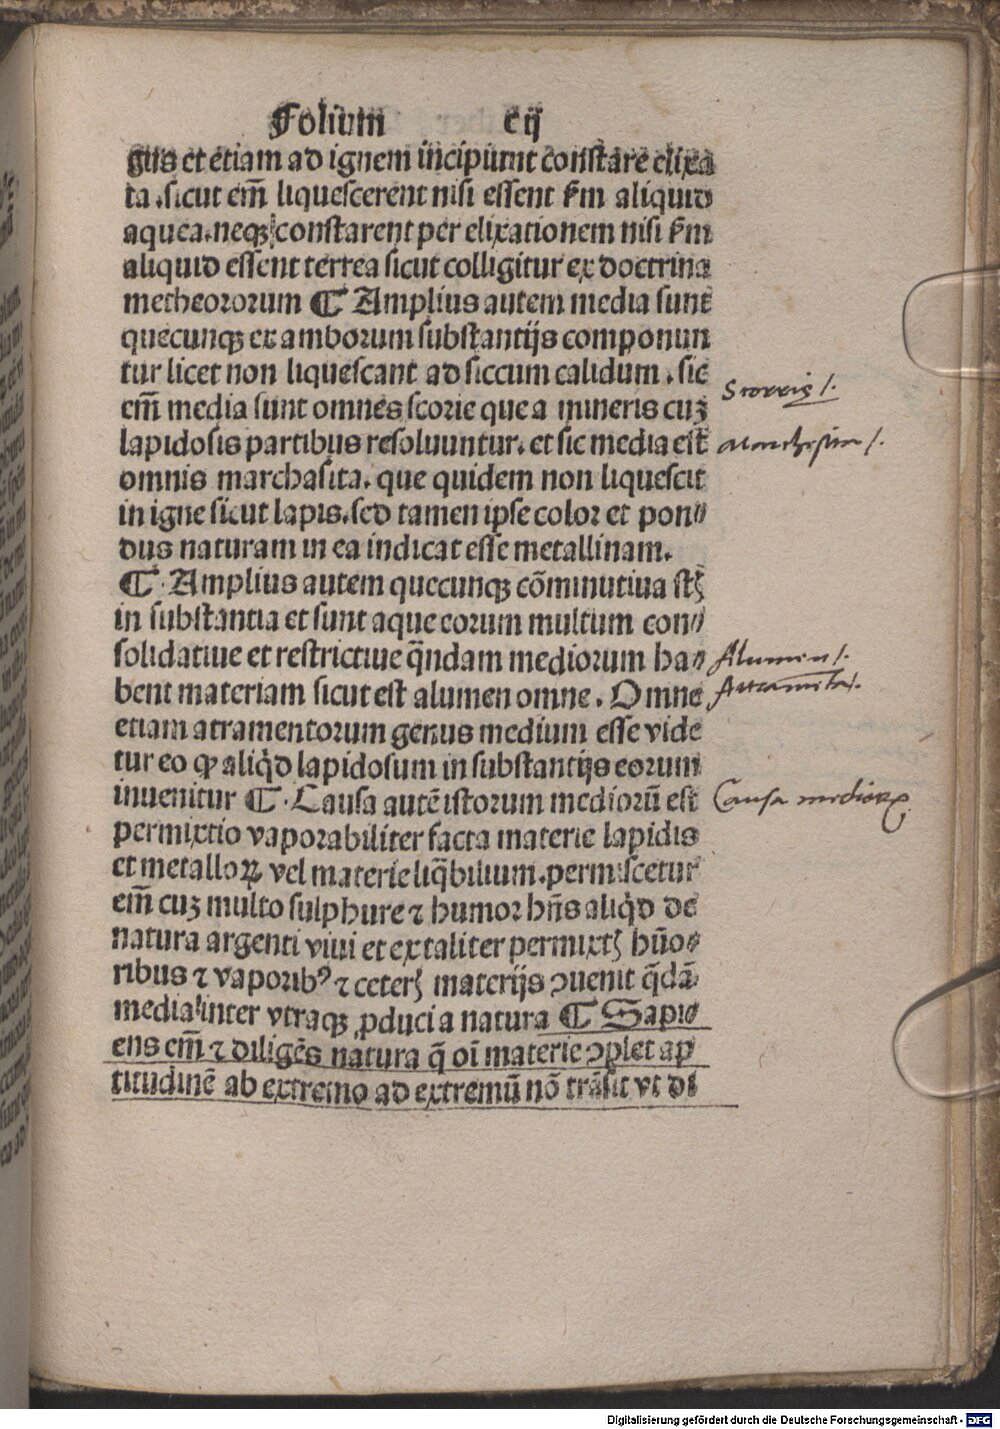 Folium cij
gus et etiam ad ignem incipiunt constare elixa
ta. sicut em̃ liquescerent nisi essent ẜm aliquid
aquea. neqꝫ constarent per elixationem nisi ẜm
aliquid essent terrea sicut colligitur ex doctrina
metheororum ⁋ Amplius autem media sunt
quecunqꝫ ex amborum substantijs componun
tur licet non liquescant ad siccum calidum. sic
em̃ media sunt omnes scorie que a mineris cuꝫ
Scoriis /.
lapidosis partibus resoluuntur. et sic media est
Marchasita /.
omnis marchasita. que quidem non liquescit
in igne sicut lapis. sed tamen ipse color et pon⸗
dus naturam in ea indicat esse metallinam.
⁋ Amplius autem quecunqꝫ cõminutiua st̃
in substantia et sunt aque eorum multum con⸗
solidatiue et restrictiue q̃ndam mediorum ha⸗
Alumen /.
bent materiam sicut est alumen omne. Omne
Attramenta /.
etiam atramentorum genus medium esse vide
tur eo ꝙ aliq̃d lapidosum in substantijs eorum
inuenitur ⁋ Causa autẽ istorum mediorũ est
Causa medioꝝ
permixtio vaporabiliter facta materie lapidis
et metalloꝝ. vel materie liq̃bilium. permiscetur
em̃ cuꝫ multo sulphure ⁊ humor hñs aliq̃d de
natura argenti viui et ex taliter permixtꝭ hũo⸗
ribus ⁊ vaporibꝰ ⁊ ceterꝭ materijs ↄuenit q̃dã
media inter vtraqꝫ ꝓduci a natura ⁋ Sapi⸗
ens em̃ ⁊ diligẽs natura q̃ oĩ materie ↄplet ap
titudinẽ ab extremo ad extremũ nõ trãsit vt di
Digitalisierung gefördert durch die Deutsche Forschungsgemeinschaft - DFG